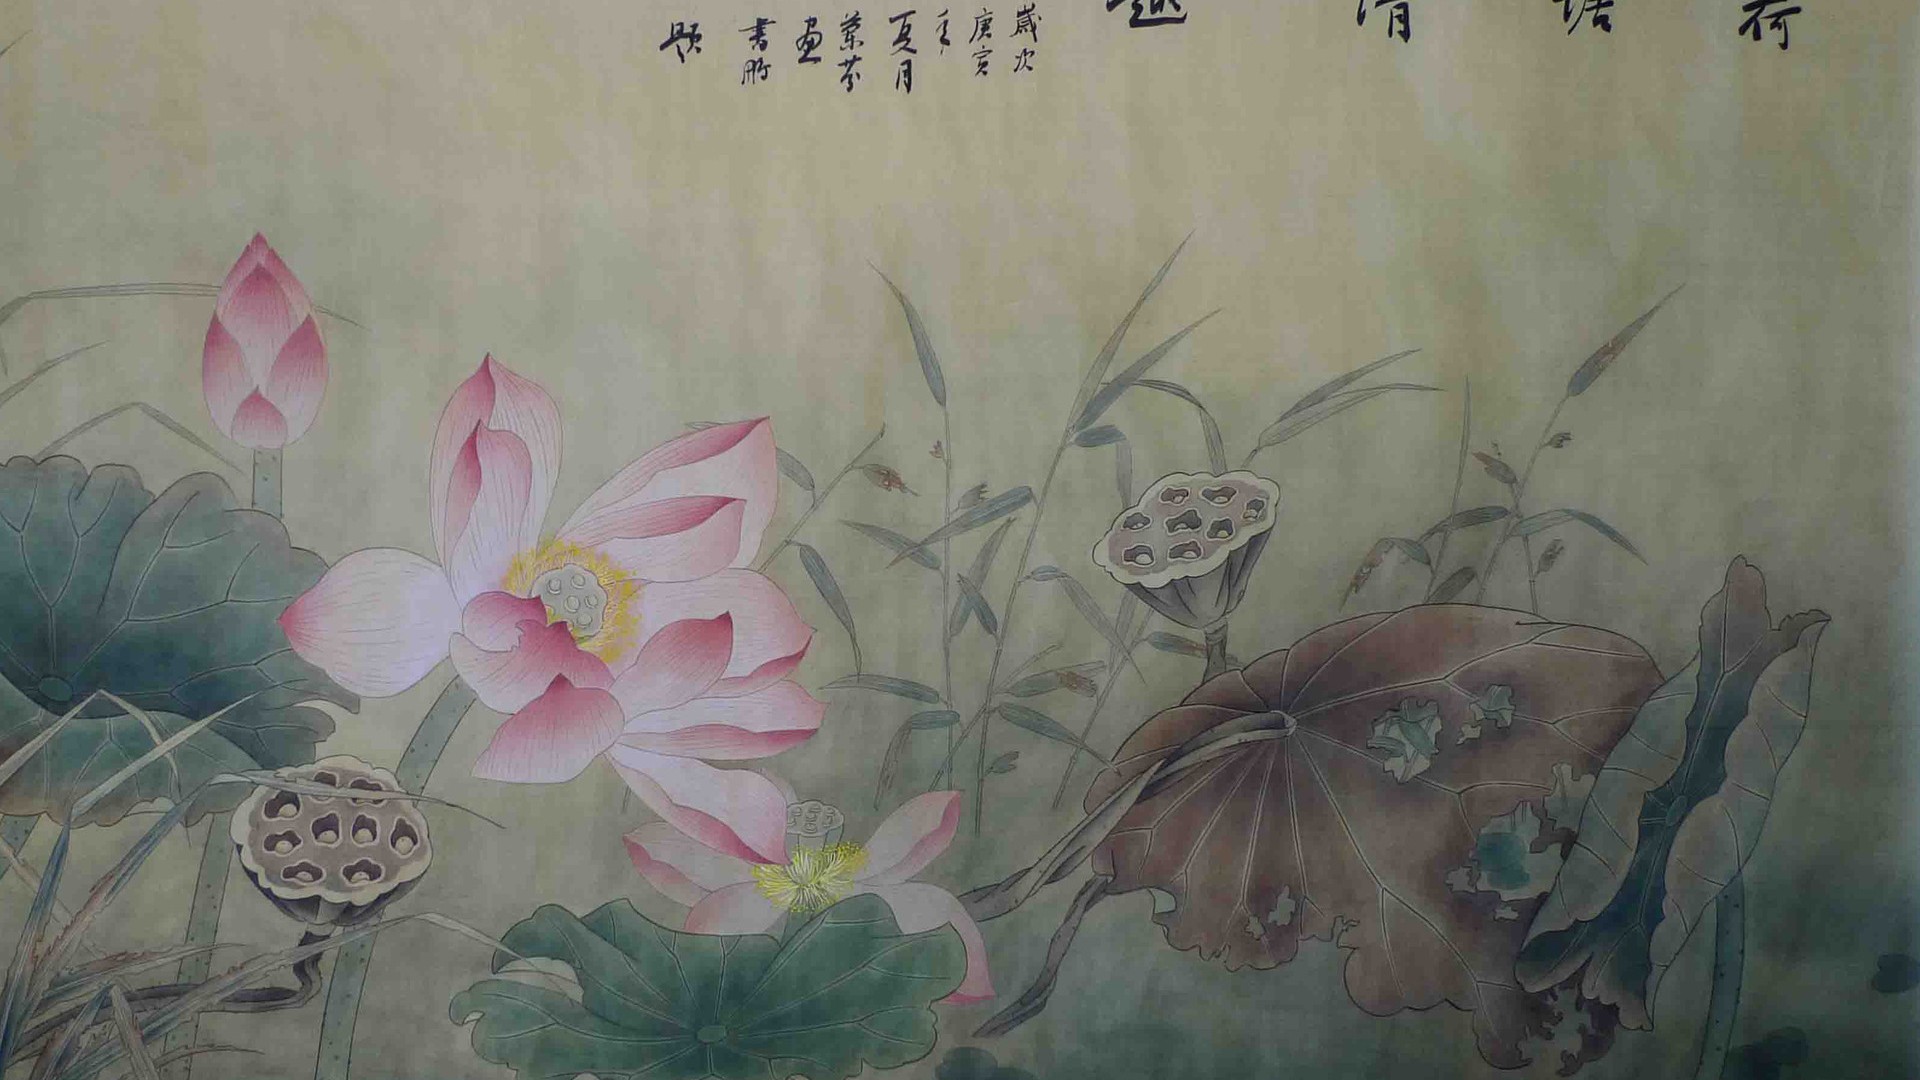 荷塘清趣
歲次
庚寅
年
夏月
蘭芬
画
書鵬
題